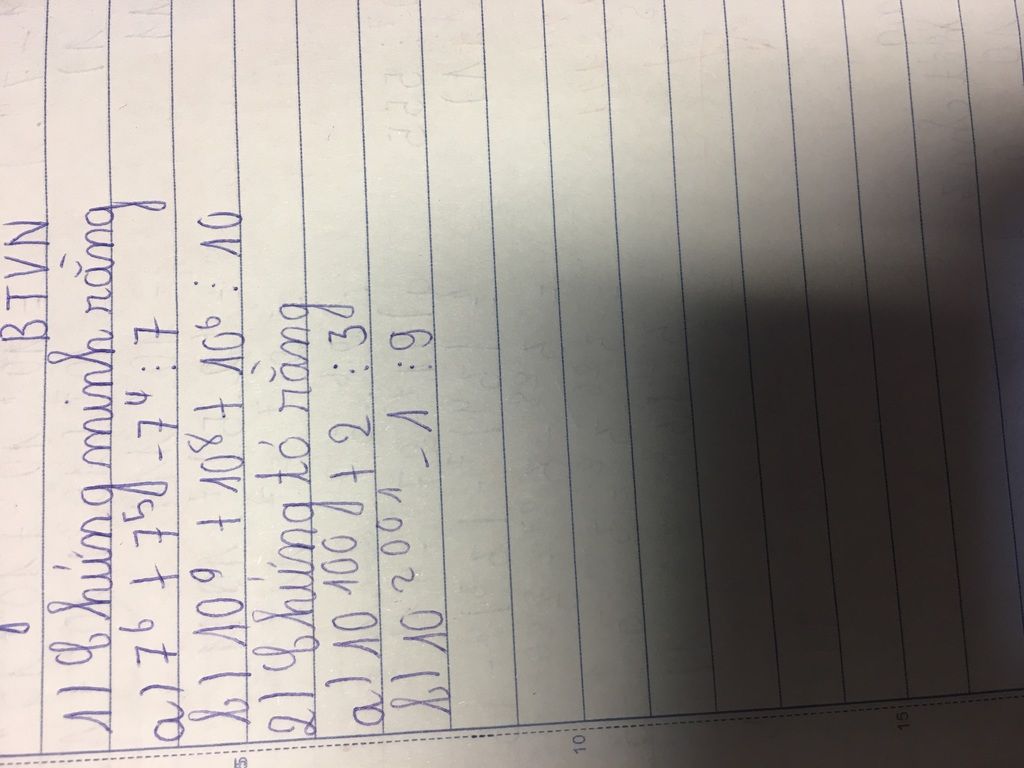 BTVN
1) Chứng minh rằng
a) 7⁶ + 7⁵ - 7⁴ ⋮ 7
b) 10⁹ + 10⁸ + 10⁶ ⋮ 10
2) Chứng tỏ rằng
a) 10¹⁰⁰ + 2 ⋮ 3
b) 10²⁰⁰¹ - 1 ⋮ 9
5
10
15